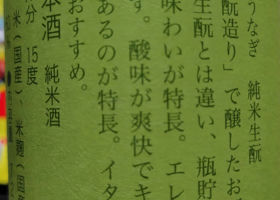 うなぎ 純米生酛
酛造り」で醸したお
生酛とは違い、瓶貯
味わいが特長。エレ
す。酸味が爽快でキ
あるのが特長。イタ
おすすめ。
本酒 純米酒
分 15度
米(国産)、米麹(国産